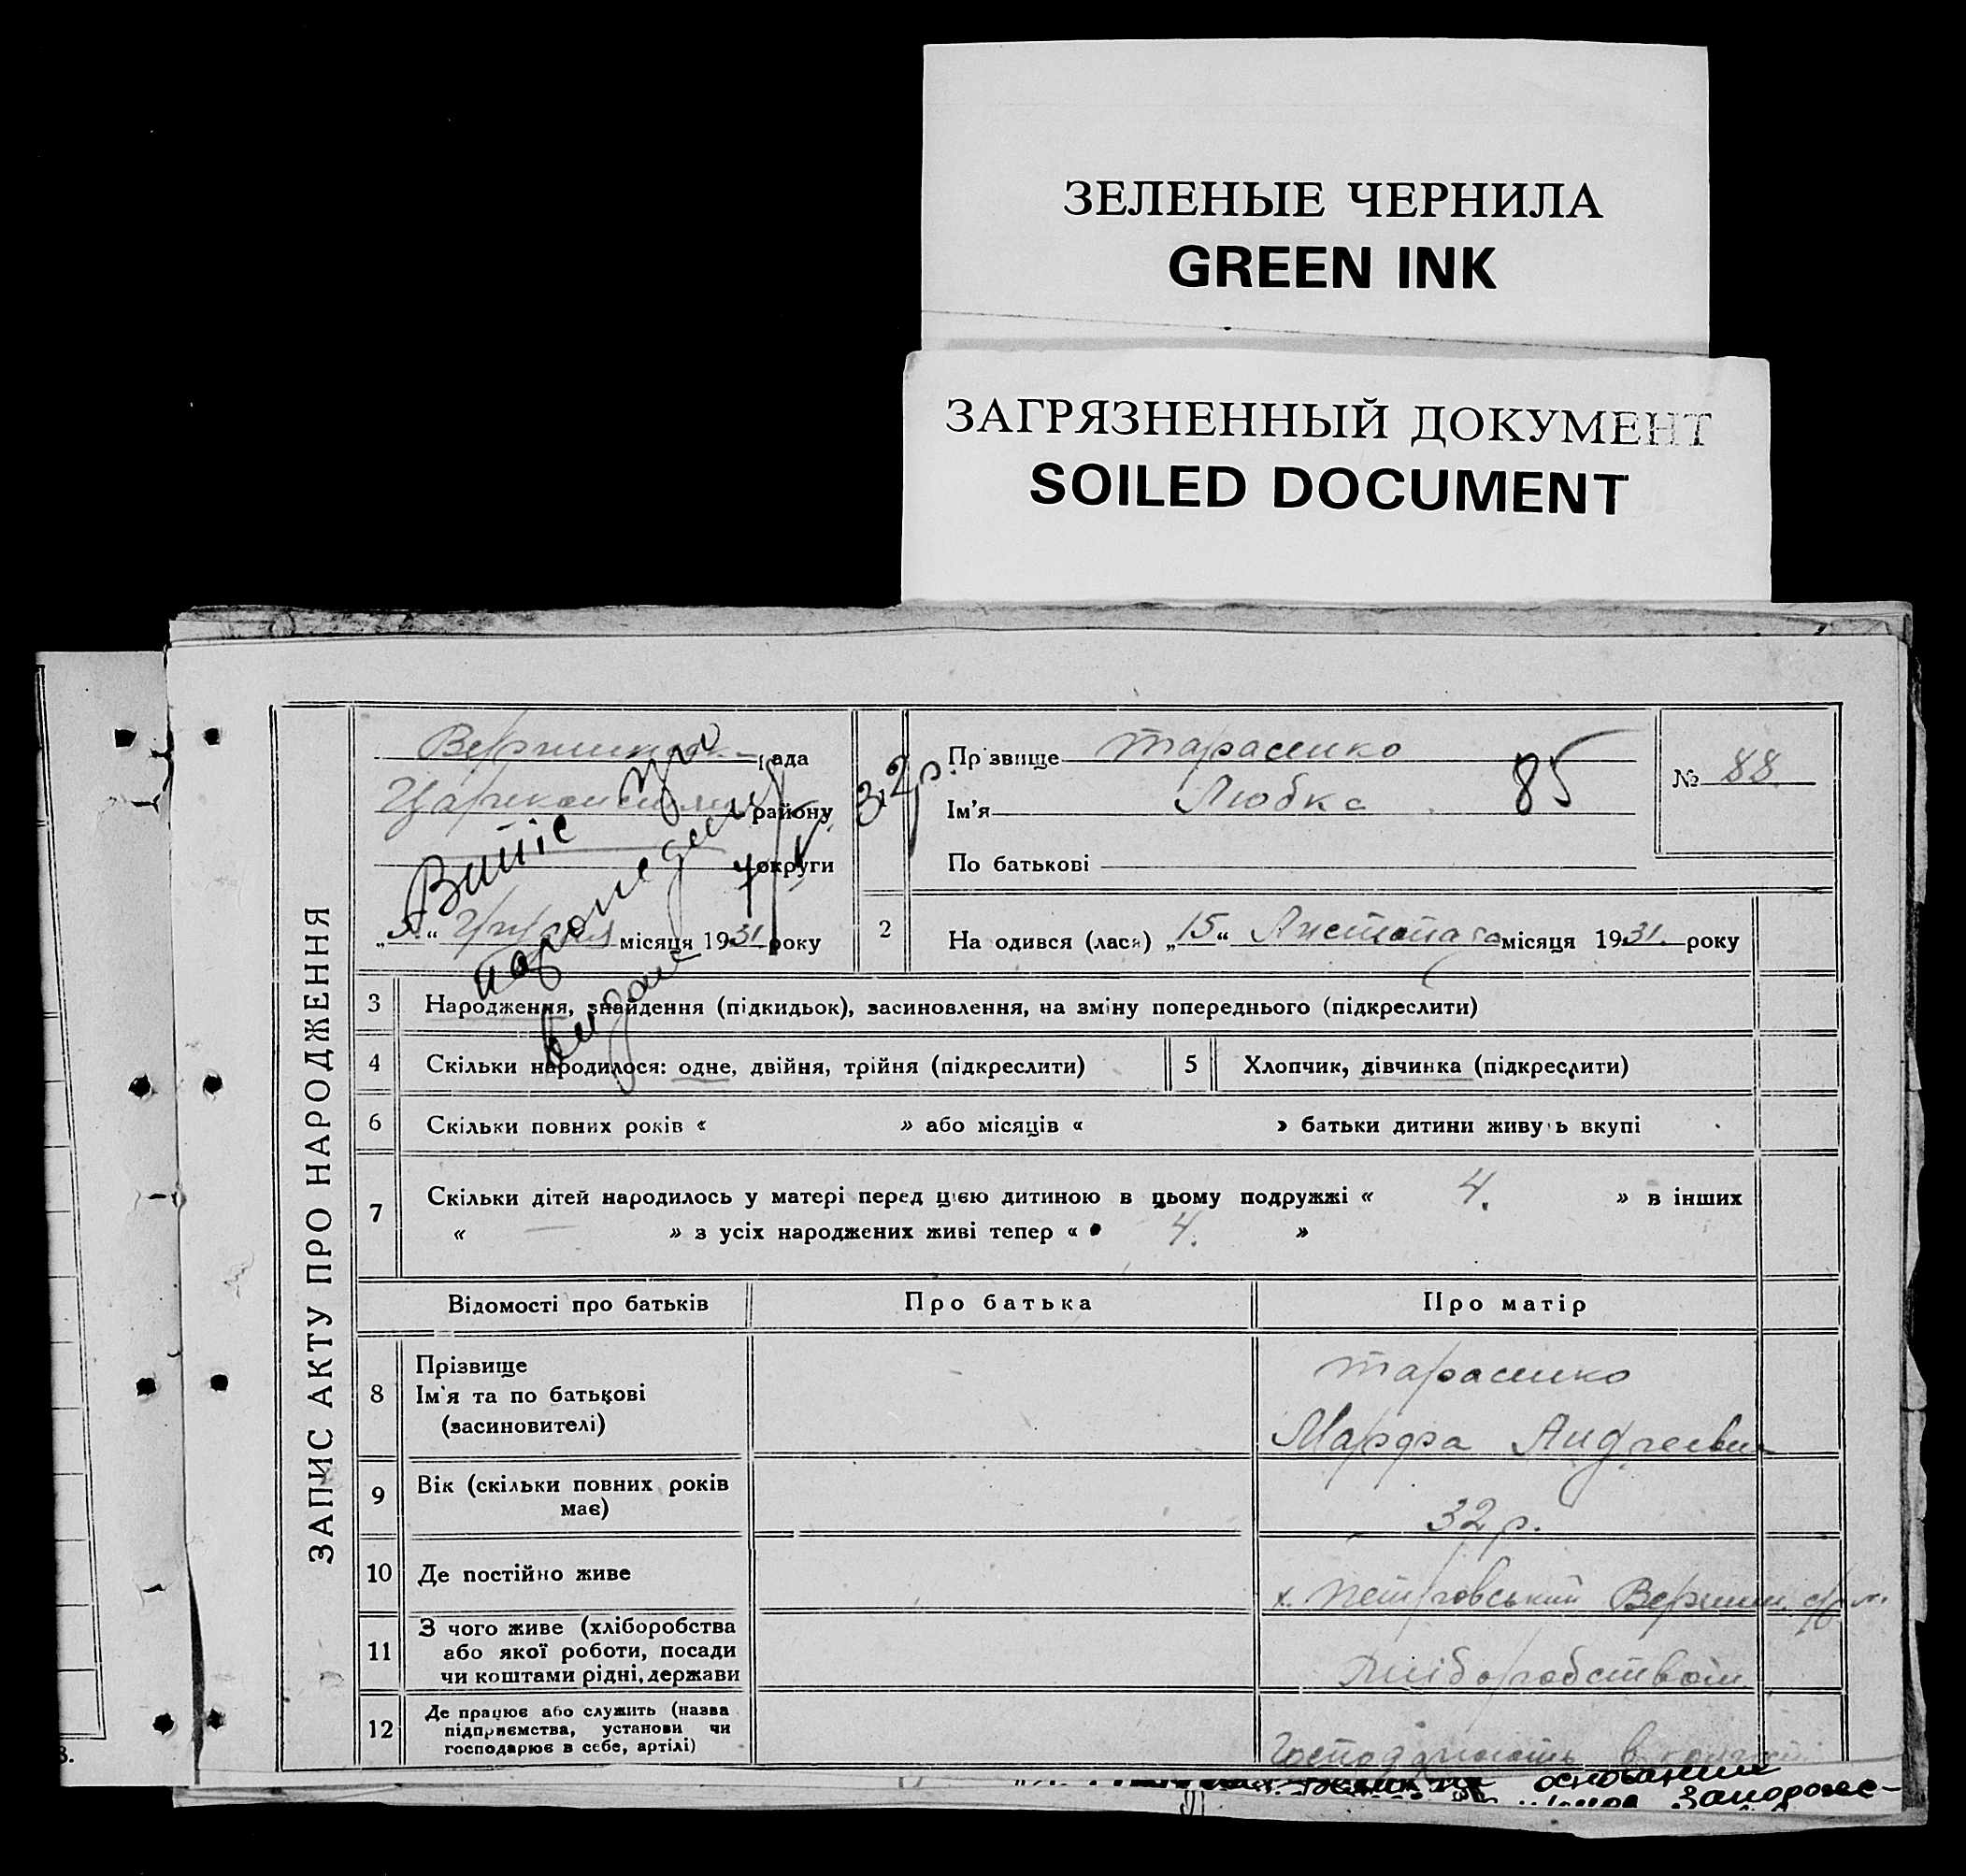 ЗЕЛЕНЫЕ ЧЕРНИЛА
GREEN INK
ЗАГРЯЗНЕННЫЙ ДОКУМЕНТ
SOILED DOCUMENT
ЗАПИС АКТУ ПРО НАРОДЖЕННЯ
рада
району
округи
„5.“ місяця 1931 року
Витяг про
народження
видане
32р.
Прізвище Тарасенко
Ім'я Любка
85
По батькові
№ 88
2 На одився (лася) „15“ Листопада місяця 1931. року
3 Народження, знайдення (підкидьок), засиновлення, на зміну попереднього (підкреслити)
4 Скільки народилося: одне, двійня, трійня (підкреслити)
5 Хлопчик, дівчинка (підкреслити)
6 Скільки повних років « » або місяців « » батьки дитини живуть вкупі
7 Скільки дітей народилось у матері перед цією дитиною в цьому подружжі « 4. » в інших
« — » з усіх народжених живі тепер « 4. »
Відомості про батьків Про батька Про матір
8 Прізвище
Ім'я та по батькові
(засиновителі)
Тарасенко
Марфа Андреевна
9 Вік (скільки повних років
має)
32 р.
10 Де постійно живе
х. Петровський
11 З чого живе (хліборобства
або якої роботи, посади
чи коштами рідні, держави
Хліборобством
12 Де працює або служить (назва
підприємства, установи чи
господарює в себе, артілі)
в
основании
Запороже-